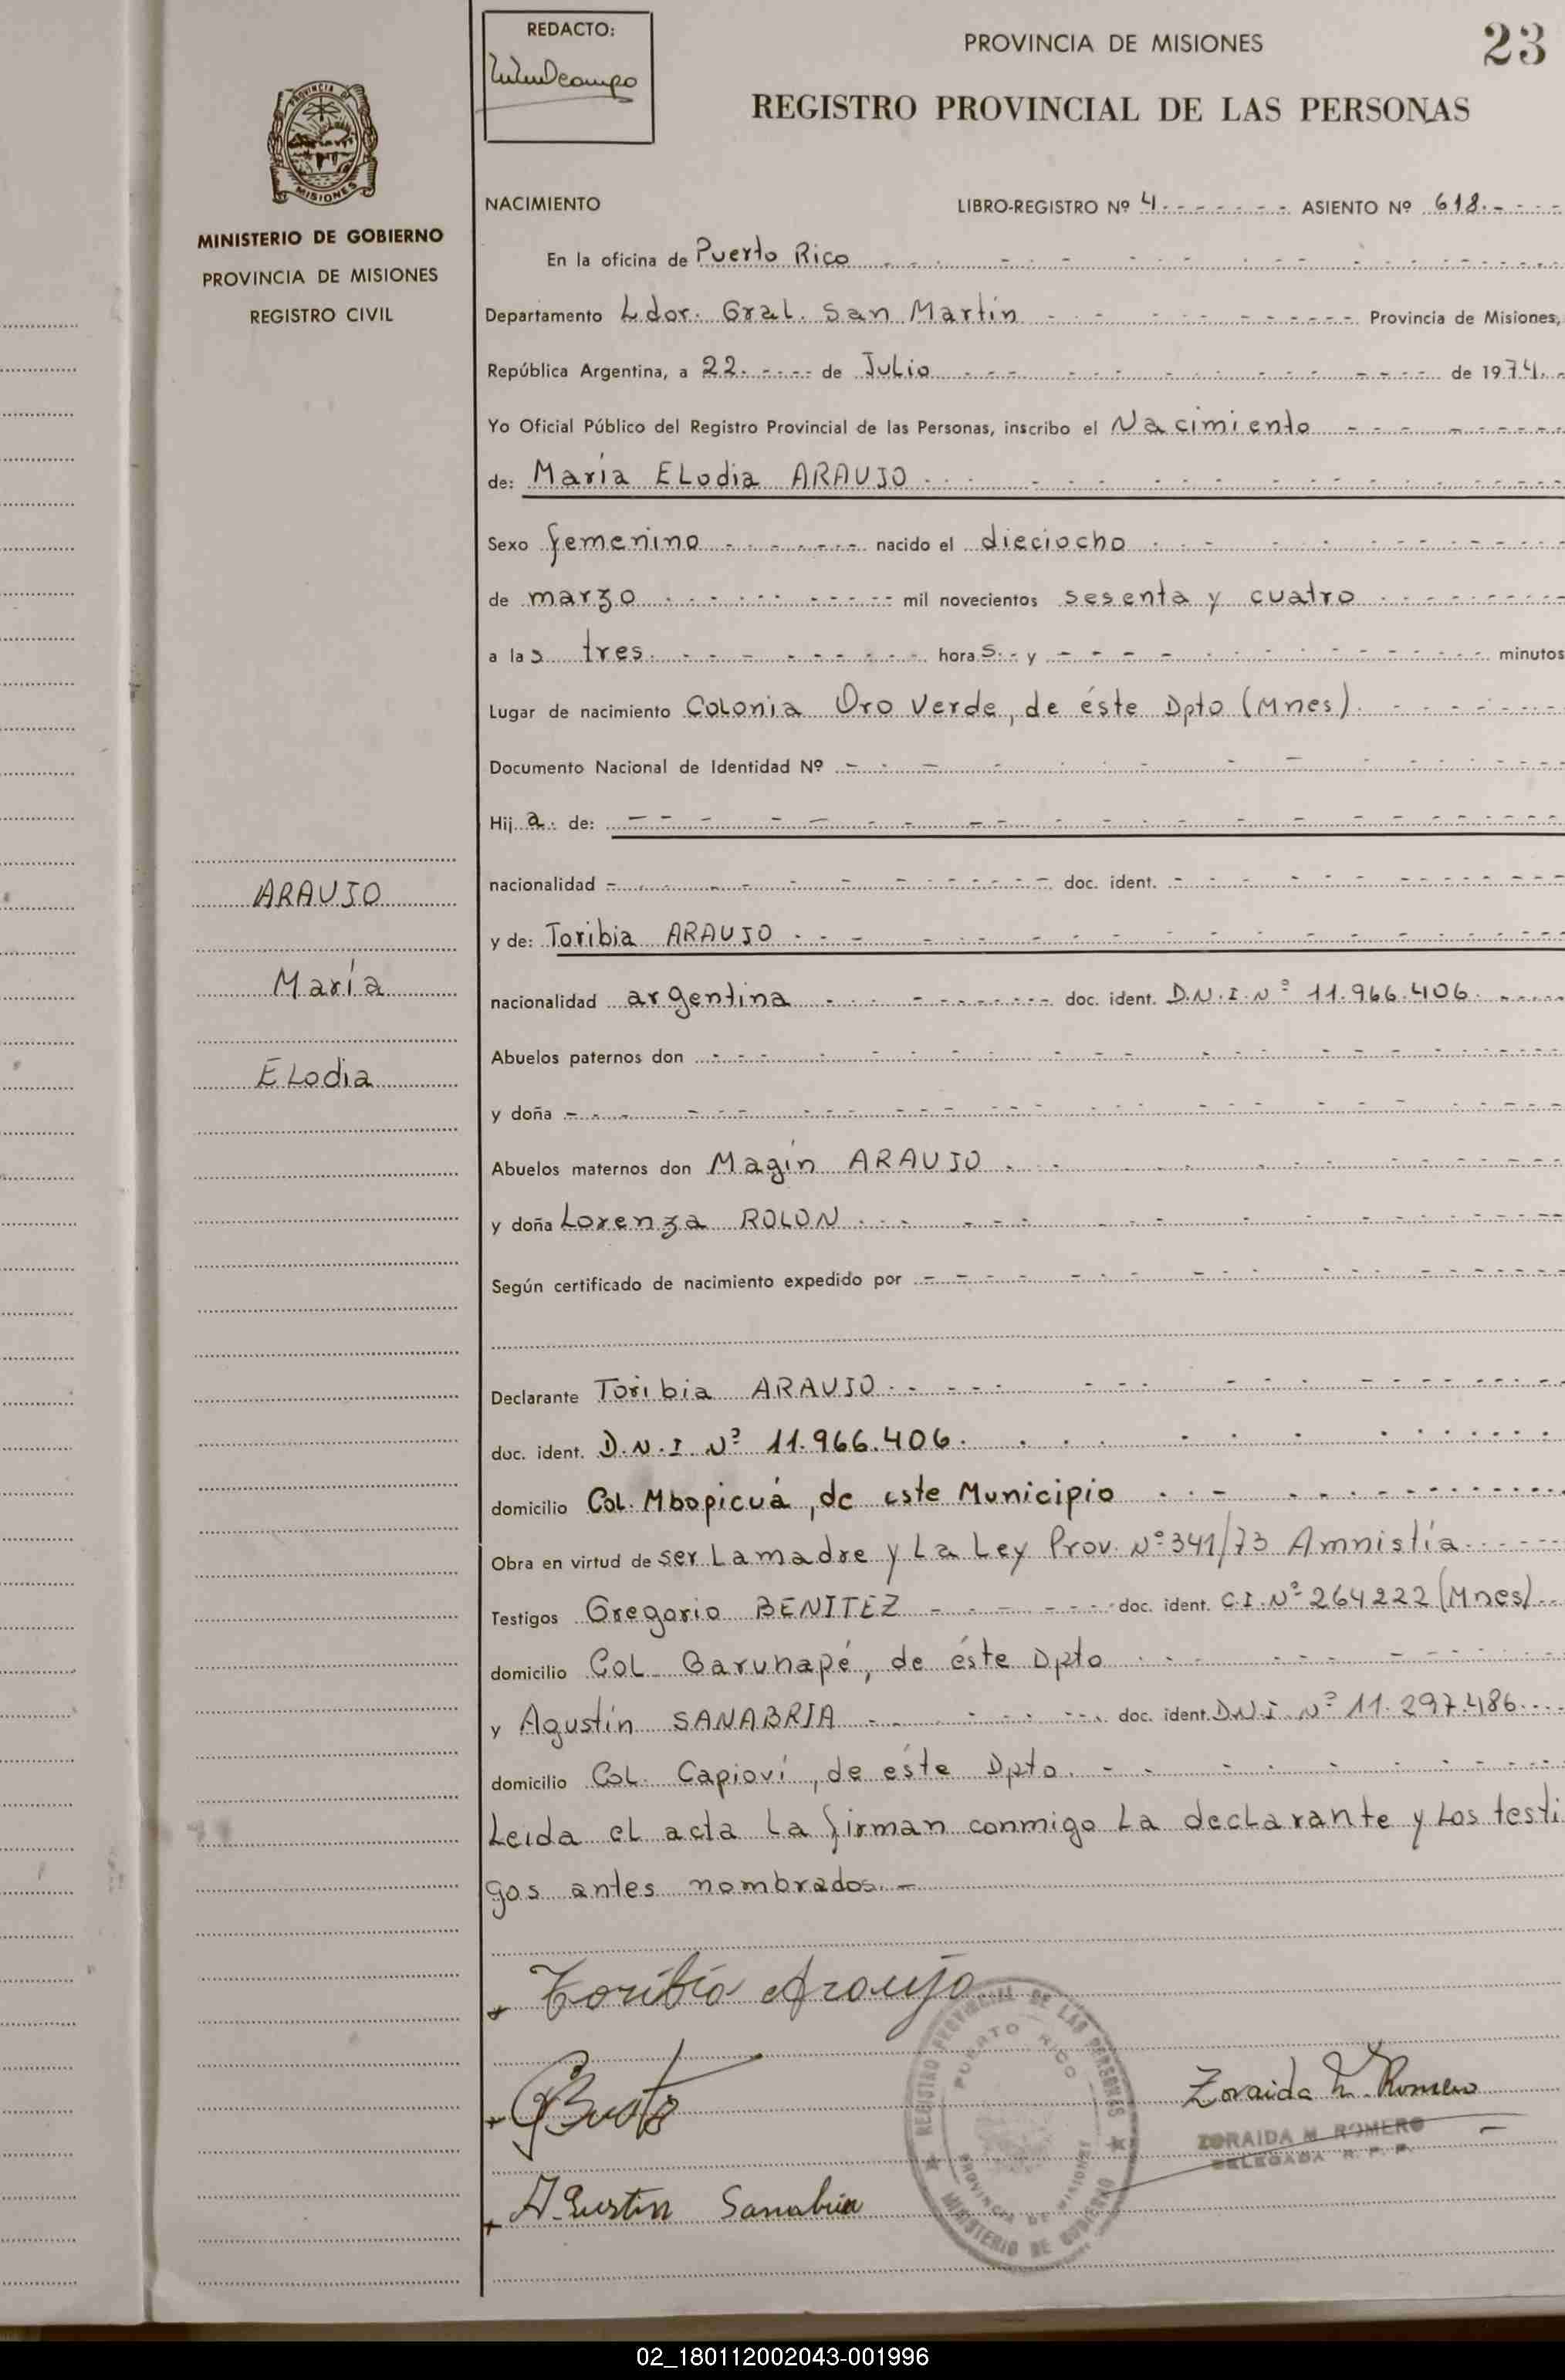 REDACTO:
PROVINCIA DE MISIONES
23
REGISTRO PROVINCIAL DE LAS PERSONAS
PROVINCIA DE
MISIONES
MINISTERIO DE GOBIERNO
PROVINCIA DE MISIONES
REGISTRO CIVIL
NACIMIENTO LIBRO-REGISTRO Nº 4 ASIENTO Nº 618
En la oficina de Puerto Rico
Departamento Ldor. Gral. San Martín Provincia de Misiones,
República Argentina, a 22 de Julio de 1974
Yo Oficial Público del Registro Provincial de las Personas, inscribo el Nacimiento
de: María ELodia ARAUJO
Sexo femenino nacido el dieciocho
de marzo mil novecientos sesenta y cuatro
a las tres horas y minutos
Lugar de nacimiento Colonia Oro Verde, de éste Dpto (Mnes)
Documento Nacional de Identidad Nº
Hija de:
nacionalidad doc. ident.
y de: Toribia ARAUJO
nacionalidad argentina doc. ident. D.N.I.Nº 11.966.406
Abuelos paternos don
y doña
Abuelos maternos don Magín ARAUJO
y doña Lorenza ROLON
Según certificado de nacimiento expedido por
Declarante Toribia ARAUJO
doc. ident. D.N.I Nº 11.966.406
domicilio Col. Mbopicuá, de este Municipio
Obra en virtud de ser La madre y La Ley Prov. Nº 341/73 Amnistía
Testigos Gregorio BENITEZ doc. ident. C.I.Nº 264222 (Mnes)
domicilio Col Garuhapé, de éste Dpto
y Agustín SANABRIA doc. ident. D.N.I. Nº 11.297.486
domicilio Col. Capioví, de éste Dpto
Leida el acta La firman conmigo La declarante y Los testi
gos antes nombrados.-
ARAUJO
María
ELodia
Toribia Araujo
Agustin Sanabria
Zoraida M. Romero
ZORAIDA M. ROMERO
DELEGADA R. P. P.
REGISTRO PROVINCIAL DE LAS PERSONAS
PUERTO RICO
PROVINCIA DE MISIONES
MINISTERIO DE GOBIERNO
02_180112002043-001996